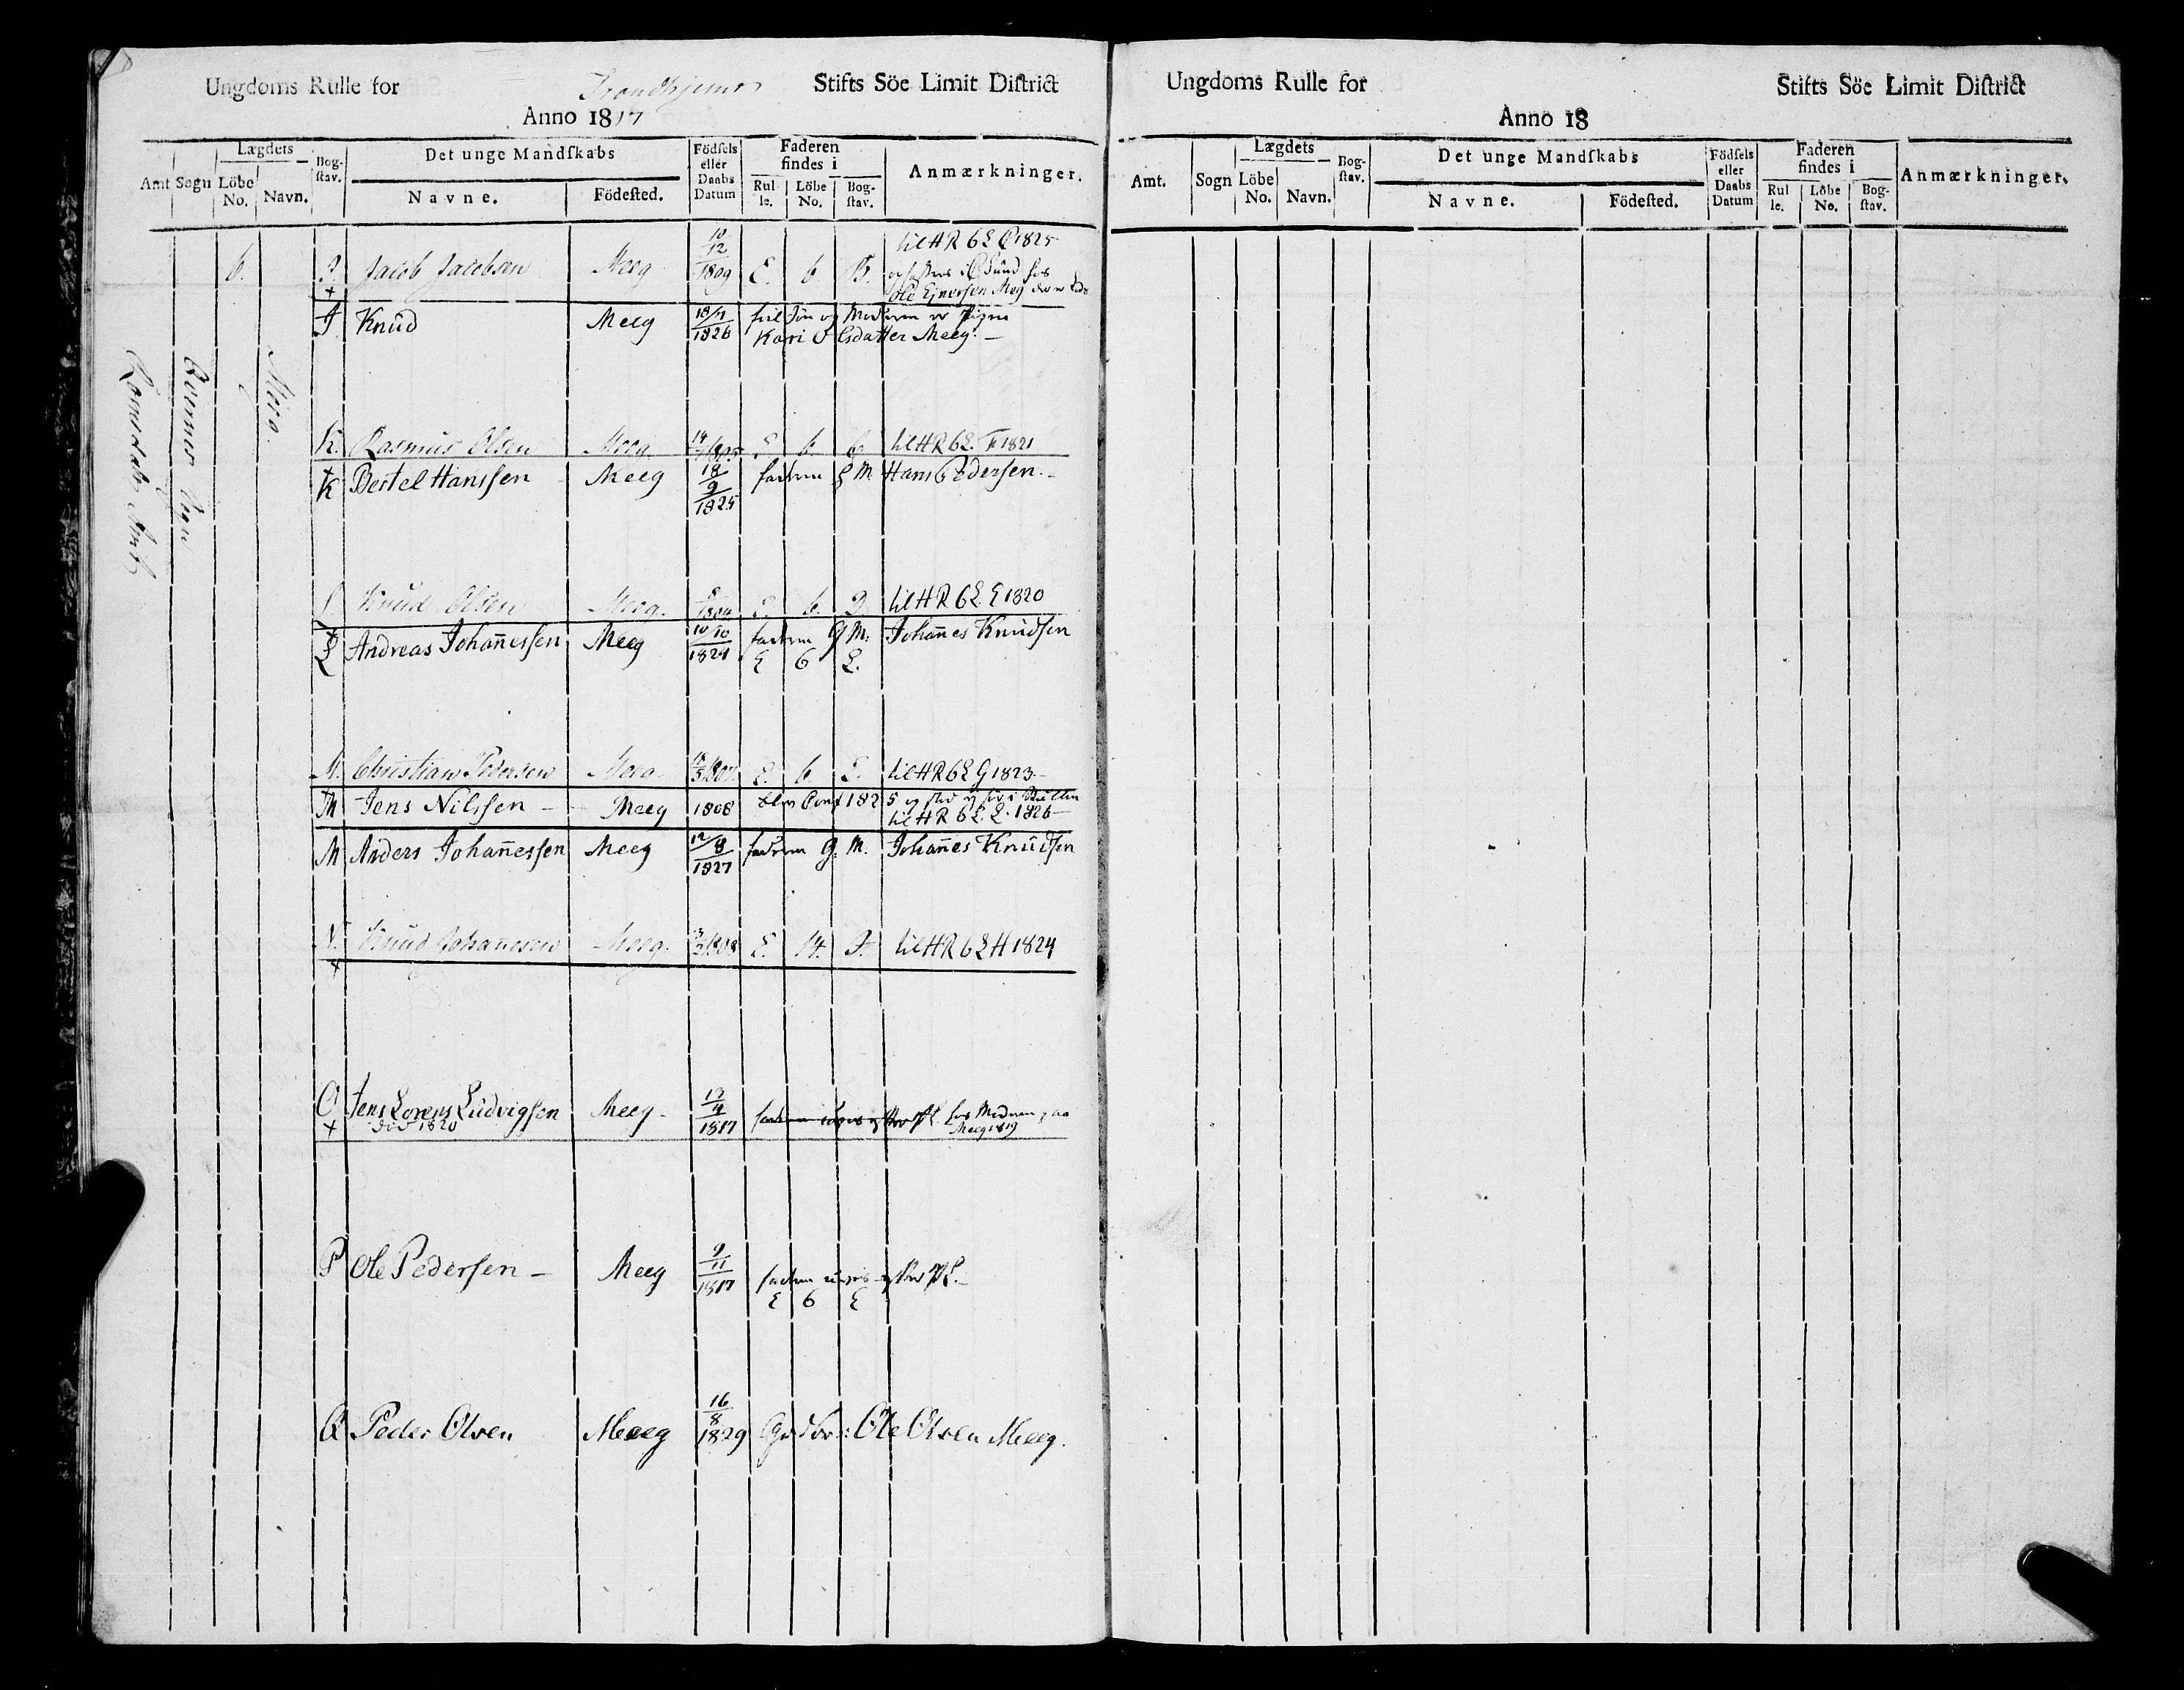 Ungdoms Rulle for Trondhjems Stifts Söe Limit District
Anno 1817
Amt Sogn Lægdets Löbe No. Navn. Bogstav. Det unge Mandskabs Navne. Födested. Födsels eller Daabs Datum Faderen findes i Rulle. Löbe No. Bogstav. Anmærkninger.
Romsdals Amt
Moeg
til HR 6 L 1825
6. Jacob Jacobsen Moeg 10/12 1809 E. 6. B.
Ole Ejnersen Meeg
J Knud Meeg 18/11 1826 Moderen er Pigen
Kari Olsdatter Meeg.
K. Rasmus Olsen Moeg 14 1805 E. 6. til HR 6 L. F 1821
K Bertel Hanssen Meeg 18/9 1825 faderen G M Hans Pedersen.
L. Knud Olsen Moeg. 1804 E. 6. D. til HR 6 L. E 1820
L Andreas Johañessen Meeg 10/10 1824 faderen G M: Johañes Knudsen
E 6 L.
M. Christian Pedersen Moeg 1807 E. 6. E. til HR 6 L G 1823
M Jens Nilssen Meeg 1808 blev Conf 1825
til HR 6 L. L. 1826
M Anders Johañessen Meeg 12/8 1827 faderen G. M. Johañes Knudsen
N. Knud Johannesen Moeg. 1808 E. 14. J. til HR 6 L H 1824
O Jens Lorens Ludvigsen Meeg 13/4 1817 faderen hos Moderen paa
död 1820 Meeg 1819
P Ole Pedersen Meeg 9/11 1817 faderen
E 6 E
Q Peder Olsen Meeg 16/8 1829 Ole Olsen Meeg.
Ungdoms Rulle for Stifts Söe Limit District
Anno 18
Amt. Sogn Lægdets Löbe No. Navn. Bogstav. Det unge Mandskabs Navne. Födested. Födsels eller Daabs Datum Faderen findes i Rulle. Löbe No. Bogstav. Anmærkninger.